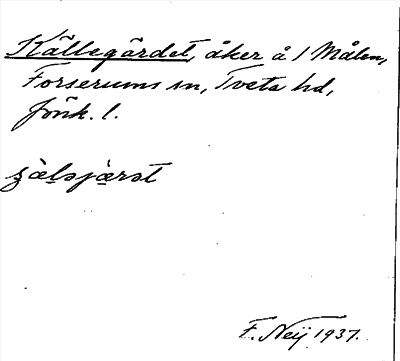 Källegärdet, åker å 1 Målen,
Forserums sn, Tveta hd,
Jönk. l.
F. Neij 1937.